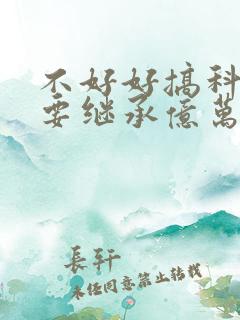 不好好搞科
要继承億萬
長轩
未经同意禁止转载